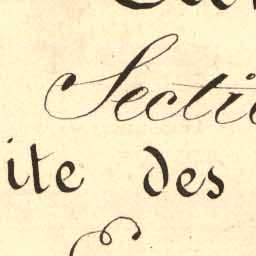 Secti
ite des